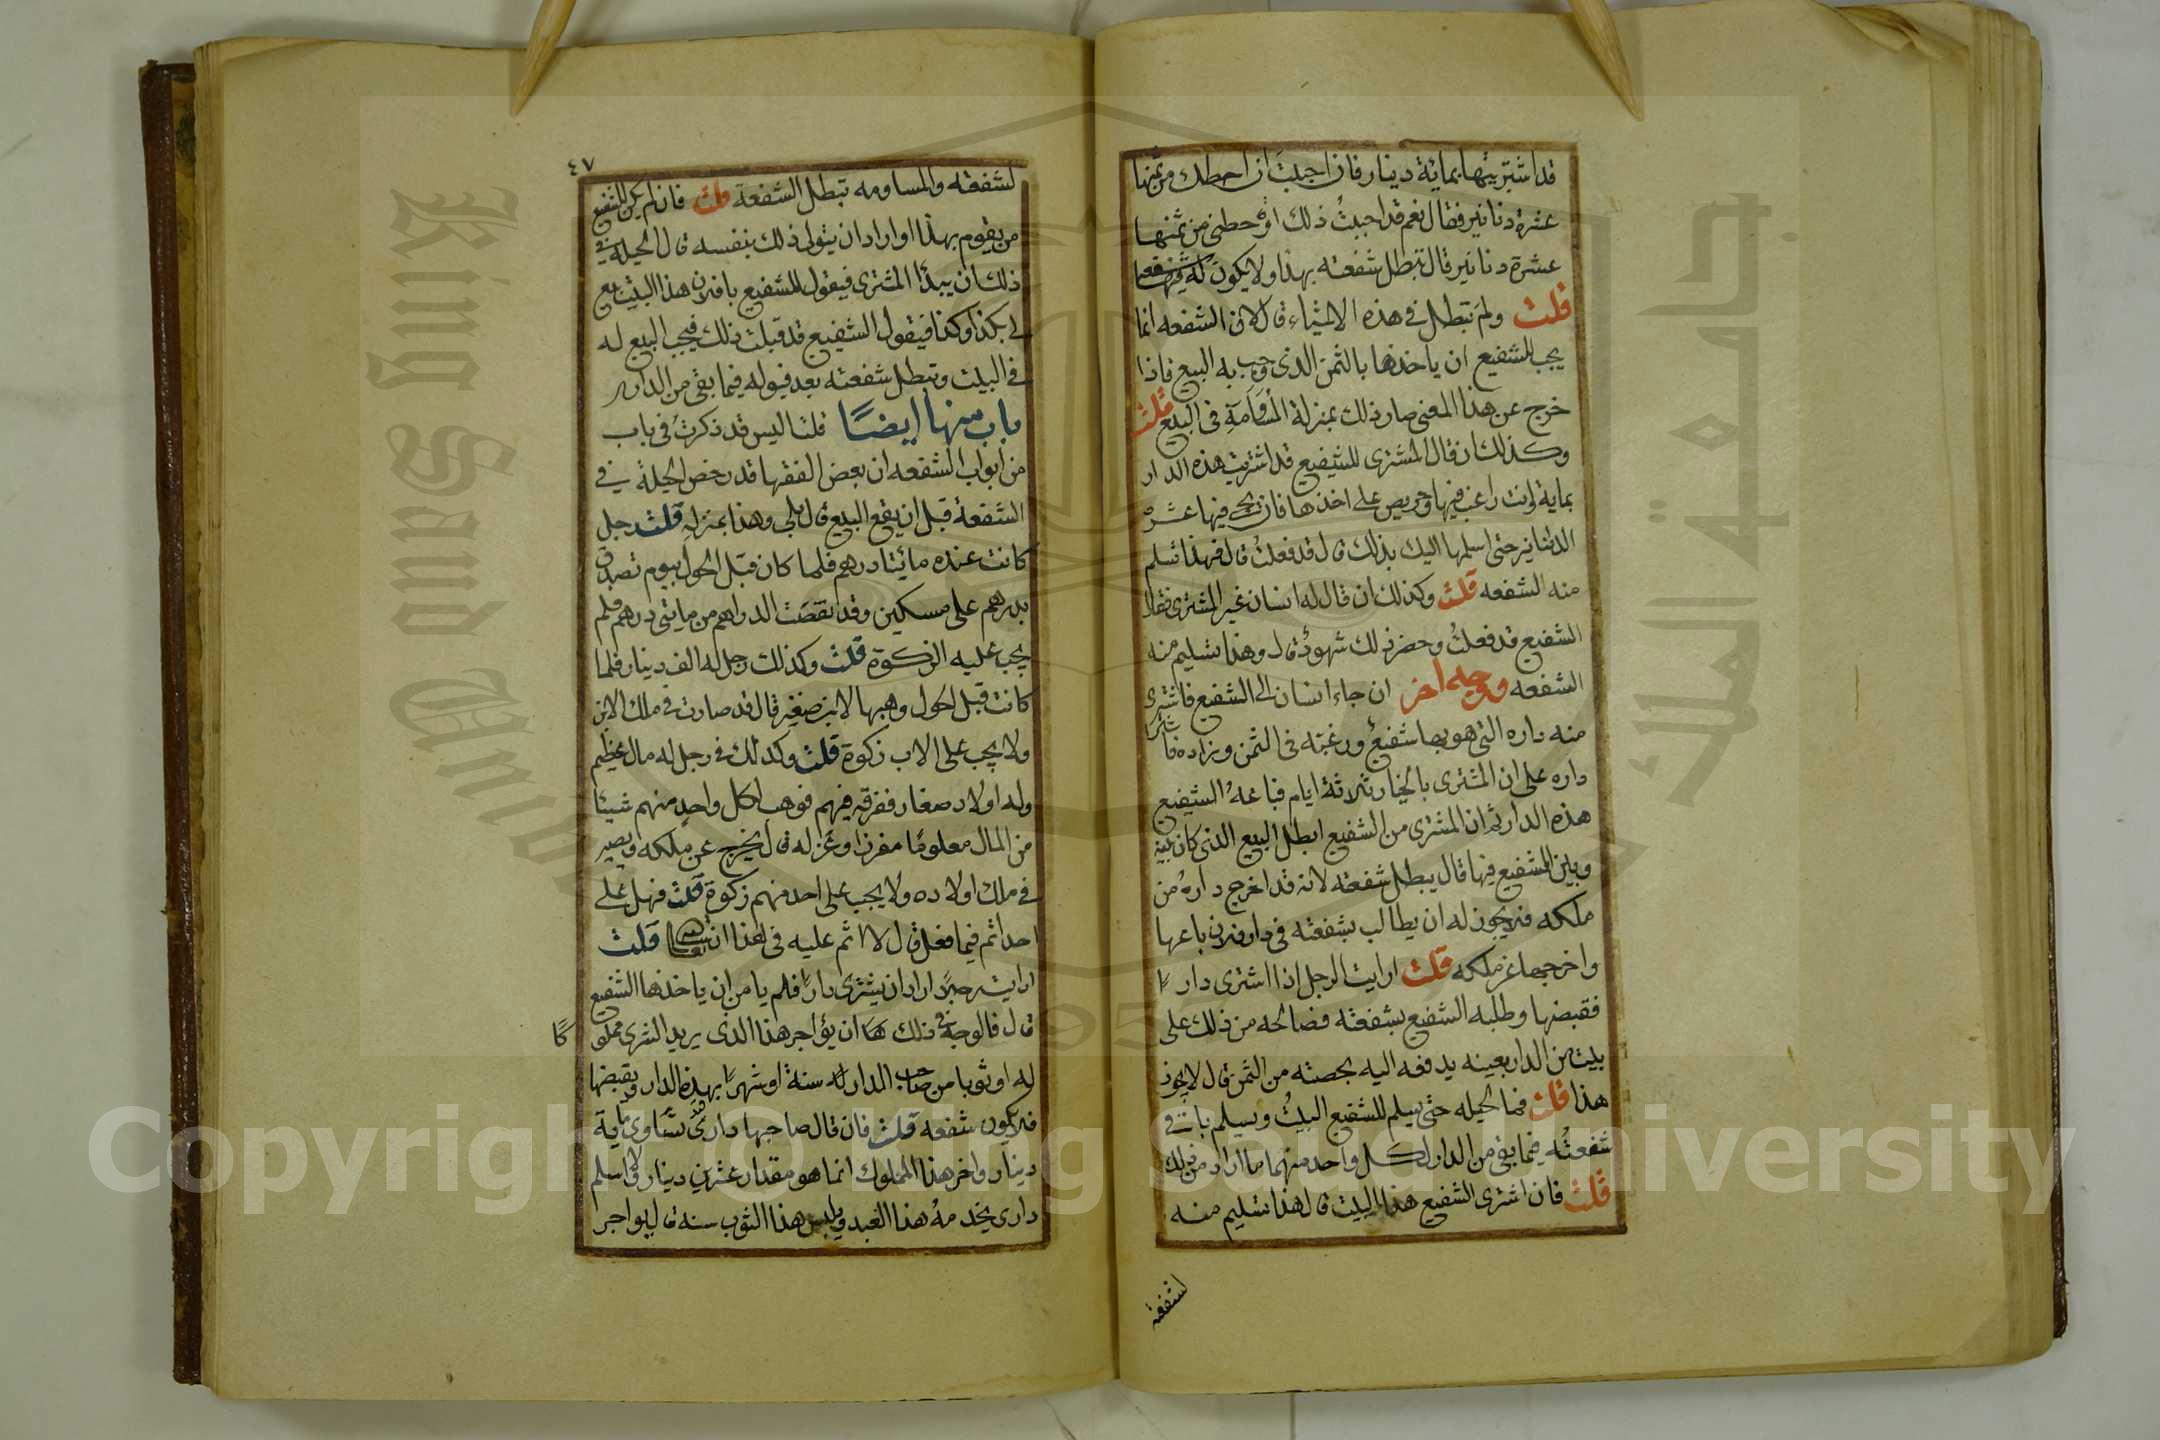 قد اشتريتها بمائة دينار فان احببت ان احطك من ثمنها
عشرة دنانير فقال نعم قد احببتُ ذلك او حطنى من ثمنها
عشرة دنانير قال تبطل شفعته بهذا ولا يكون له فيها شفعه
قلت ولم تبطل فى هذه الاشياء قال لان الشفعه انما
يجب للشفيع ان ياخذها بالثمن الذى وجب به البيع فاذا
خرج عن هذا المعنى صار ذلك بمنزلة المساومة فى البيع قلت
وكذلك ان قال المشترى للشفيع قد اشتريت هذه الدار
بماية وانت راغب فيها وحريص على اخذها فان فيها عشرة
الدنانير حتى اسلمها اليك بذلك قال قد فعلتُ قال فهذا تسليم
منه الشفعه قلت وكذلك ان قال له انسان غير المشترى فقال
الشفيع قد فعلتُ وحضر ذلك شهودٌ قال وهذا تسليم منه
الشفعه ووجه اخر ان جاء انسان الى الشفيع فاشترى
منه داره التى هو بها شفيعٌ ورغبته فى الثمن وزاده فاشترا
داره على ان المشترى بالخيار ثلاثة ايام فباعهُ الشفيع
هذه الدار ثم ان المشترى من الشفيع ابطل البيع الذى كان بينه
وبين الشفيع فيها قال يبطل شفعته لانه قد اخرج دارهُ من
ملكه فلا يجوز له ان يطالب بشفعته فى دار فلان باعها
واخرجها عن ملكه قلت ارايت الرجل اذا اشترى دارًا
فقبضها وطلبه الشفيع بشفعته فصالحه من ذلك على
بيت من الدار بعينه يدفعه اليه بحصته من الثمن قال لا يجوز
هذا قلت فما الحيله حتى يسلم للشفيع البيتُ ويسلم باتى
شفعتُه فيما بقى من الدار لكل واحد منهما ما اراد من ذلك
قلت فان اشترى الشفيع هذا البيت قال هذا تسليم منه
لشفعته
٤٧
لشفعته والمساومه تبطل الشفعة قلت فان لم يكن للشفيع
من يقوم بهذا او اراد ان يتولى ذلك بنفسه قال الحيلة فى
ذلك ان يبدأ المشترى فيقول للشفيع يا فلان هذا البيت بيع
لى بكذا وكذا فيقول الشفيع قد قبلت ذلك فيجب البيع له
فى البيت وتبطل شفعته بعد قبوله فيما بقى من الدار
باب منها ايضًا قلنا اليس قد ذكرت فى باب
من ابواب الشفعه ان بعض الفقها قد رخص الحيلة فى
الشفعة قبل ان يقع البيع قال بلى وهذا بمنزله قلت رجل
كانت عنده مائيتا درهم فلما كان قبل الحول بيوم تصدق
بدرهم على مسكين وقد نقصَت الدراهم من مايتى درهم فلم
يجب عليه الزكوة قلت وكذلك رجل له الف دينار فلما
كانت قبل الحول وهبها لابن صغير قال قد صارت فى ملك الابن
ولا يجب على الاب زكوة قلت وكذلك فى رجل له مال عظيم
وله اولاد صغار ففرقه فيهم فوهب لكل واحدٍ منهم شيئا
من المال معلومًا مفرزا وعزله قال يخرج عن ملكه ويصير
فى ملك اولاده ولا يجب على احد منهم زكوة قلت فهل على
احد اثم فيما فعل قال لا اثم عليه فى هذا ان شا الله تعالى قلت
ارايت رجلاً اراد ان يشترى دارًا فلم يامن ان ياخذها الشفيع
قال فالوجه فى ذلك ان يؤاجر هذا الذى يريد الشرى مملو
كًا
له او ثوبا من صاحب الدار له سنة او شهرًا بهذه الدار ويقبضها
فلا يكون شفعه قلت فان قال صاحبها دارى قد تساوى ماية
دينار واخر هذا المملوك انما هو مقدار عشرين دينار اسلم
دارى يخدمهُ هذا العبد ويلبس هذا الثوب سنة قال يواجر
Copyright © King Saud University
King Saud University
جامعة الملك